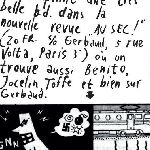 belle b.d. dans la
nouvelle revue "AU SEC!"
(20 FR. % Gerbaud, 5 rue
Volta, Paris 3°) où on
trouve aussi Benito,
Jocelin, Toffe et bien sur
Gerbaud.